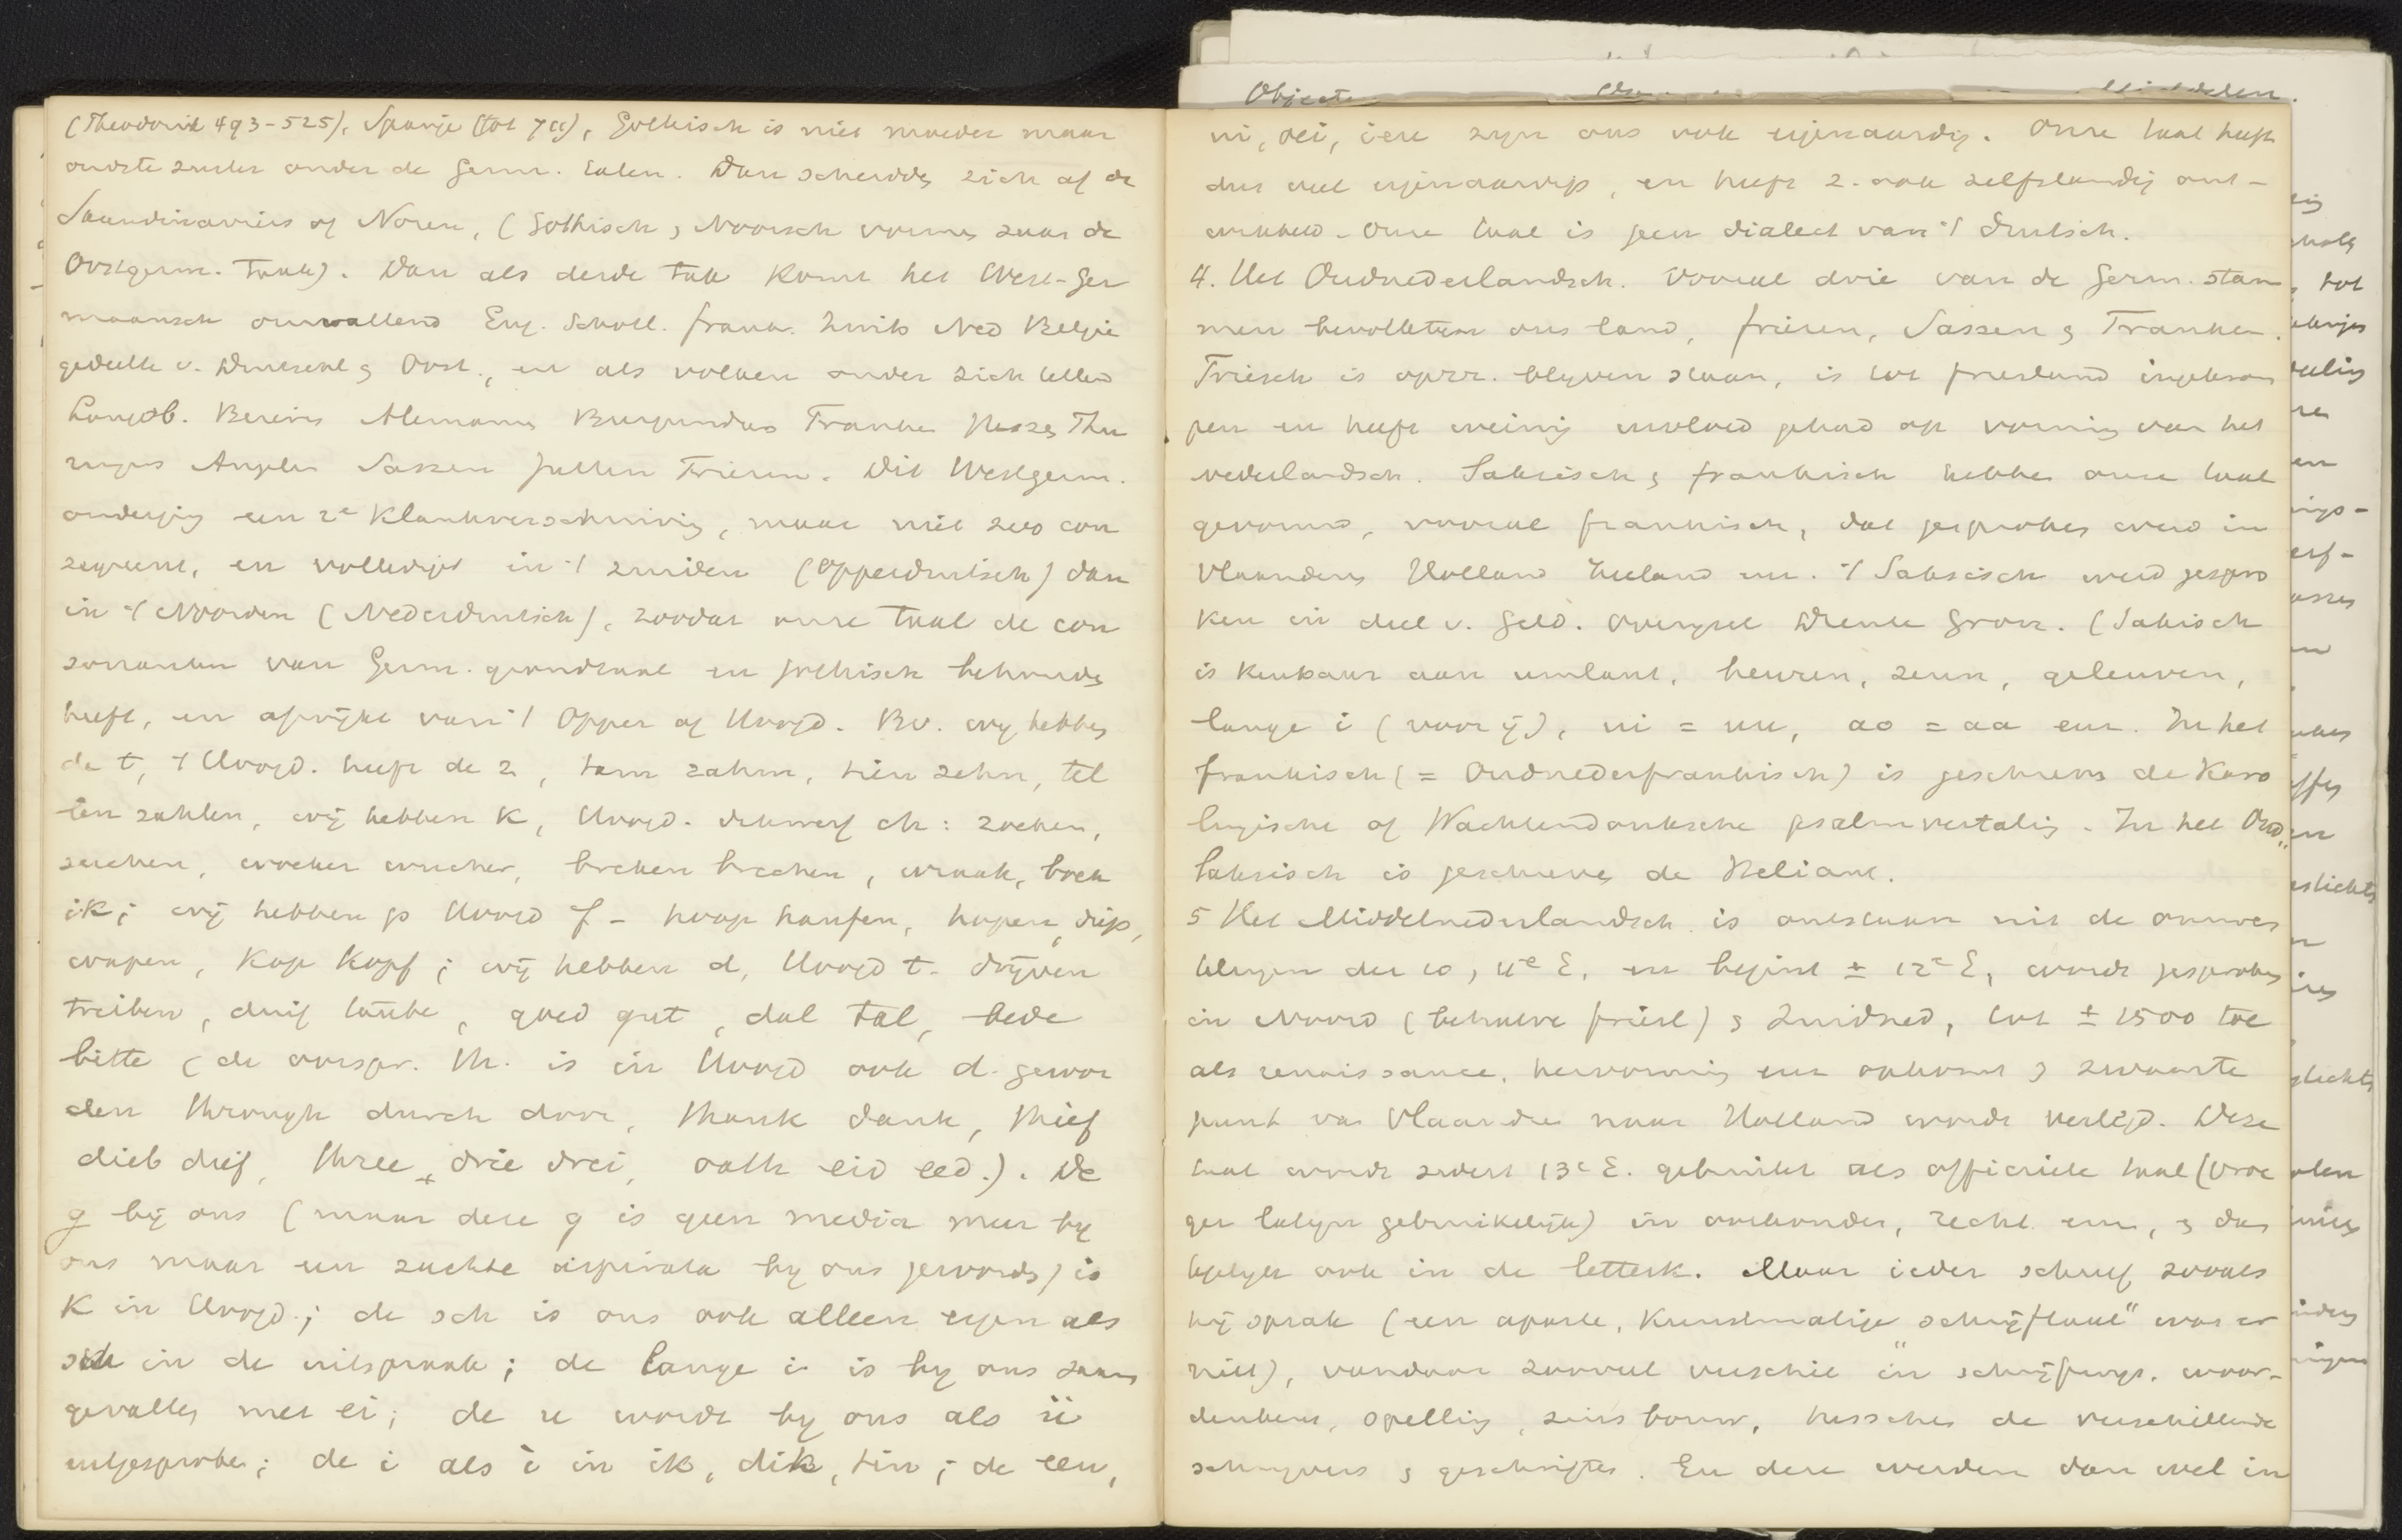 (Theodorik 493-525), Spanje (tot 711), Gothisch is niet moeder maar
oudste zuster onder de Germ. talen. Dan scheidde zich af de
Skandinaviërs of Noren, (Gothisch & Noorsch vormen saam de
Oostgerm. Taak). Dan als derde tak komt het West-Ger
maansch omvattend Eng. Schotl. frank. Zwits Ned België
gedeelte v. Duitschl & Oost., en als volken onder zich tellend
Longob. Beiers Alemans Burgunders Franken Hessen Thu
ringers Angelen Sassen Jutten Friezen. Dit Westgerm.
onderging een 2e Klankverschuiving, maar niet zoo con
sequent, en volledigst in 't zuiden (Opperduitsch) dan
in 't Noorden (Nederduitsch), zoodat onze taal de con
sonanten van Germ. grondtaal en gothisch behouden
heeft, en afwijkt van 't Opper of Hoogd. Bv. wij hebben
de t, 't Hoogd. heeft de z, tam zahm, tien zehn, tel
len zahlen, wij hebben k, Hoogd. scherpf ch: zoeken,
suchen, woeker wucher, breken brechen, wraak, boek
ik; wij hebben p Hoogd f - hoop haufen, hopen, diep,
wapen, Kop Kopf; wij hebben d, Hoogd t. drijven
treiben, duif taube, goed gut, dal tal, bede
bitte (de oorspr. th. is in Hoogd ook d. gewor
den through durch door, thank dank, thief
dieb dief, three drie drei, oath eid eed.). De
g bij ons (maar deze g is geen media meer bij
ons maar een zachte aspirata bij ons geworden) is
K in Hoogd.; de sch is ons ook alleen eigen als
sch in de uitspraak; de lange i is bij ons saam
gevallen met ei; de u wordt bij ons als ü
uitgesproken; de i als i in ik, dik, tin; de eeu,
Objecten
ui, oei, ieu zijn ons ook eigenaardig. Onze taal heeft
dus veel eigenaardigs, en heeft z. ook zelfstandig ont-
wikkeld. Onze taal is geen dialect van 't Duitsch.
4. Het Oudnederlandsch. Vooral drie van de Germ. stam
men bevolkten ons land, friezen, Sassen & Franken.
Friesch is apart blijven staan, is tot friesland ingekrom
pen en heeft weinig invloed gehad op vorming van het
nederlandsch. Saksisch & frankisch hebben onze taal
gevormd, vooral frankisch, dat gesproken werd in
Vlaanderen Holland Zeeland enz. 't Saksisch werd gespro
ken in deel v. Geld. Overijsel Drente Gron. (Saksisch
is kenbaar aan umlaut, heuren, zeun, geleuven,
lange i (voor ij), ui = uu, ao = aa enz. In het
frankisch (= Oudnederfrankisch) is geschreven de Karo
lingische of Wachtendonksche psalmvertaling. In het Oud
saksisch is geschreven de Heliant.
5 Het Middelnederlandsch is ontstaan uit de
der 10, 11e E, en begint ± 12e E, wordt gesproken
in Noord (behalve friesl) & Zuidned, tot ± 1500 toe
als renaissance, hervorming enz opkomt & zwaarte
punt van Vlaanderen naar Holland wordt verlegd. Deze
taal wordt sedert 13e E. gebruikt als officieele taal (vroe
ger latijn gebruikelijk) in oorkonden, recht enz, & dus
ook in de letterk. Maar ieder schreef zooals
hij sprak (een aparte, kunstmatige „schrijftaal" was er
niet), vandaar zooveel verschil in schrijfwijs. woor-
denkeus, spelling, zinsbouw, tusschen de verschillende
schrijvers & geschriften. En deze werden dan wel in